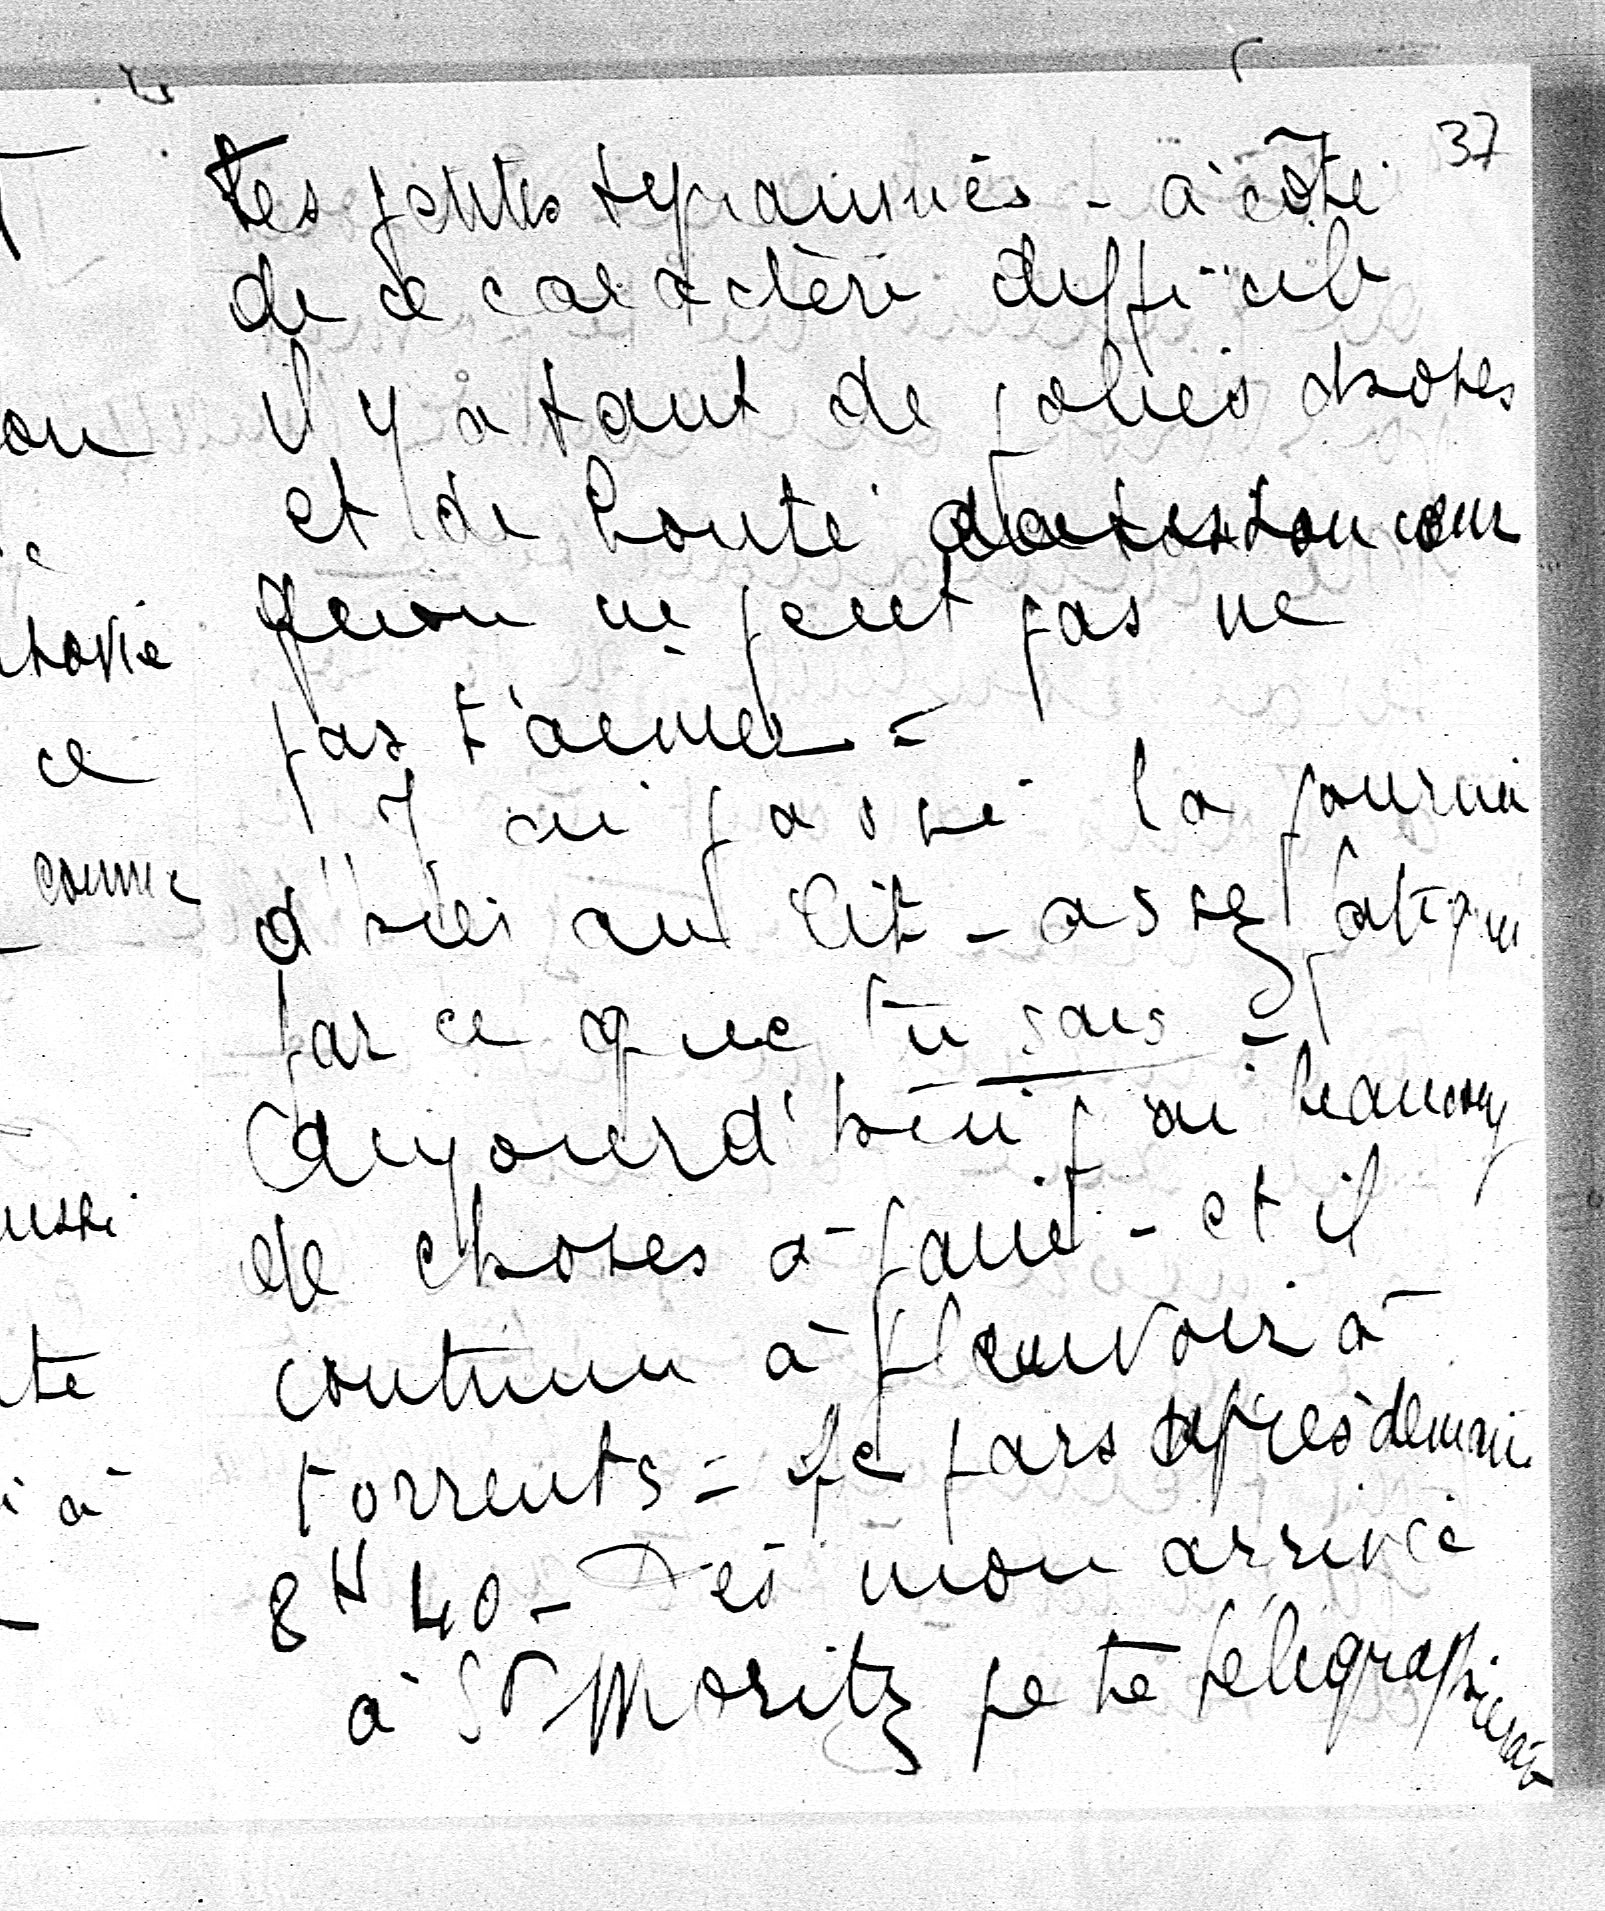 37
tes petites tyrannies - à côté
de ce caractère difficile
il y a tant de jolies choses
et de bonté dans ton cœur
qu'on ne peut pas ne
pas t'aimer =
J'ai passé la journée
d'hier au lit - assez fatigué
par ce que tu sais =
Aujourd'hui j'ai beaucoup
de choses à faire - et il
continue à pleuvoir à
torrents = Je pars après demain
8H 40 - Dès mon arrivée
à St Moritz je te télégraphierai
ou
ce
comme